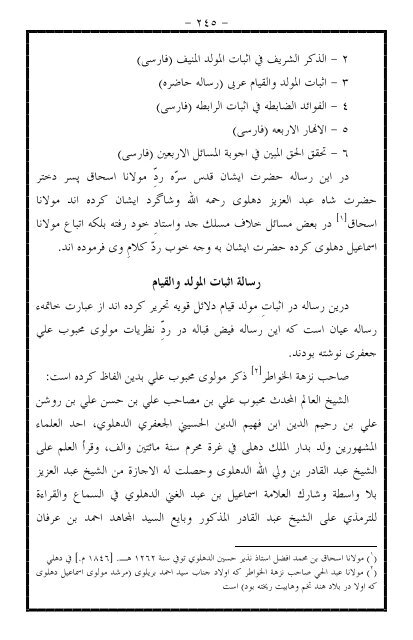 - ٢٤٥ -
٢ - الذكر الشريف في اثبات المولد المنيف (فارسى)
٣ - اثبات المولد والقيام عربى (رساله حاضره)
٤ - الفوائد الضابطه في اثبات الرابطه (فارسى)
٥ - الانهار الاربعه (فارسى)
٦ - تحقق الحق المبين في اجوبة المسائل الاربعين (فارسى)
در اين رساله حضرت ايشان قدس سرّه ردّ مولانا اسحاق پسر دختر
حضرت شاه عبد العزيز دهلوى رحمه الله وشاگرد ايشان كرده اند مولانا
اسحاق[١] در بعض مسائل خلاف مسلك جد واستادِ خود رفته بلكه اتباع مولانا
اسماعيل دهلوى كرده حضرت ايشان به وجه خوب ردّ كلامِ وى فرموده اند.
رسالة اثبات المولد والقيام
درين رساله در اثباتِ مولد قيام دلائل قويه تحرير كرده اند از عبارت خاتمهء
رساله عيان است كه اين رساله فيض قباله در ردِّ نظريات مولوى محبوب علي
جعفرى نوشته بودند.
صاحب نزهة الخواطر[٢] ذكر مولوى محبوب علي بدين الفاظ كرده است:
الشيخ العالم المحدث محبوب علي بن مصاحب علي بن حسن علي بن روشن
علي بن رحيم الدين ابن فهيم الدين الحسيني الجعفري الدهلوي، احد العلماء
المشهورين ولد بدار الملك دهلى في غرة محرم سنة مائتين والف، وقرأ العلم على
الشيخ عبد القادر بن ولي الله الدهلوى وحصلت له الاجازة من الشيخ عبد العزيز
بلا واسطة وشارك العلامة اسماعيل بن عبد الغني الدهلوي في السماع والقراءة
للترمذي على الشيخ عبد القادر المذكور وبايع السيد المجاهد احمد بن عرفان
(١) مولانا اسحاق بن محمد افضل استاذ نذير حسين الدهلوي توفي سنة ١٢٦٢ هــ. [١٨٤٦ م.] في دهلي
(٢) مولانا عبد الحي صاحب نزهة الخواطر كه اولاد جناب سيد احمد بريلوى (مرشد مولوى اسماعيل دهلوى
كه اولا در بلاد هند تخم وهابيت ريخته بود) است